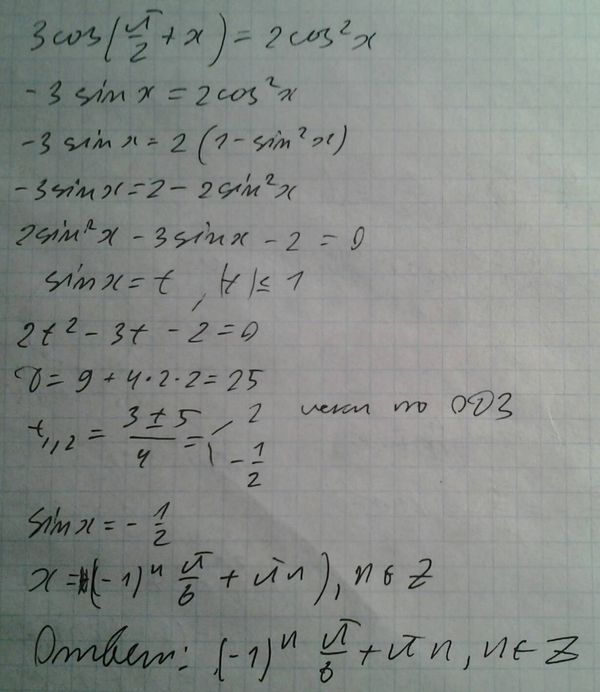 3cos(π/2 + x) = 2cos²x
-3 sin x = 2cos²x
-3 sin x = 2 (1 - sin²x)
-3 sin x = 2 - 2sin²x
2sin²x - 3sin x - 2 = 0
sin x = t, |t| ≤ 1
2t² - 3t - 2 = 0
D = 9 + 4·2·2 = 25
t₁,₂ = (3 ± 5)/4 = 2 по ОДЗ
-1/2
sin x = -1/2
x = (-1)ⁿ π/6 + πn), n ∈ Z
Ответ: (-1)ⁿ π/6 + πn, n ∈ Z